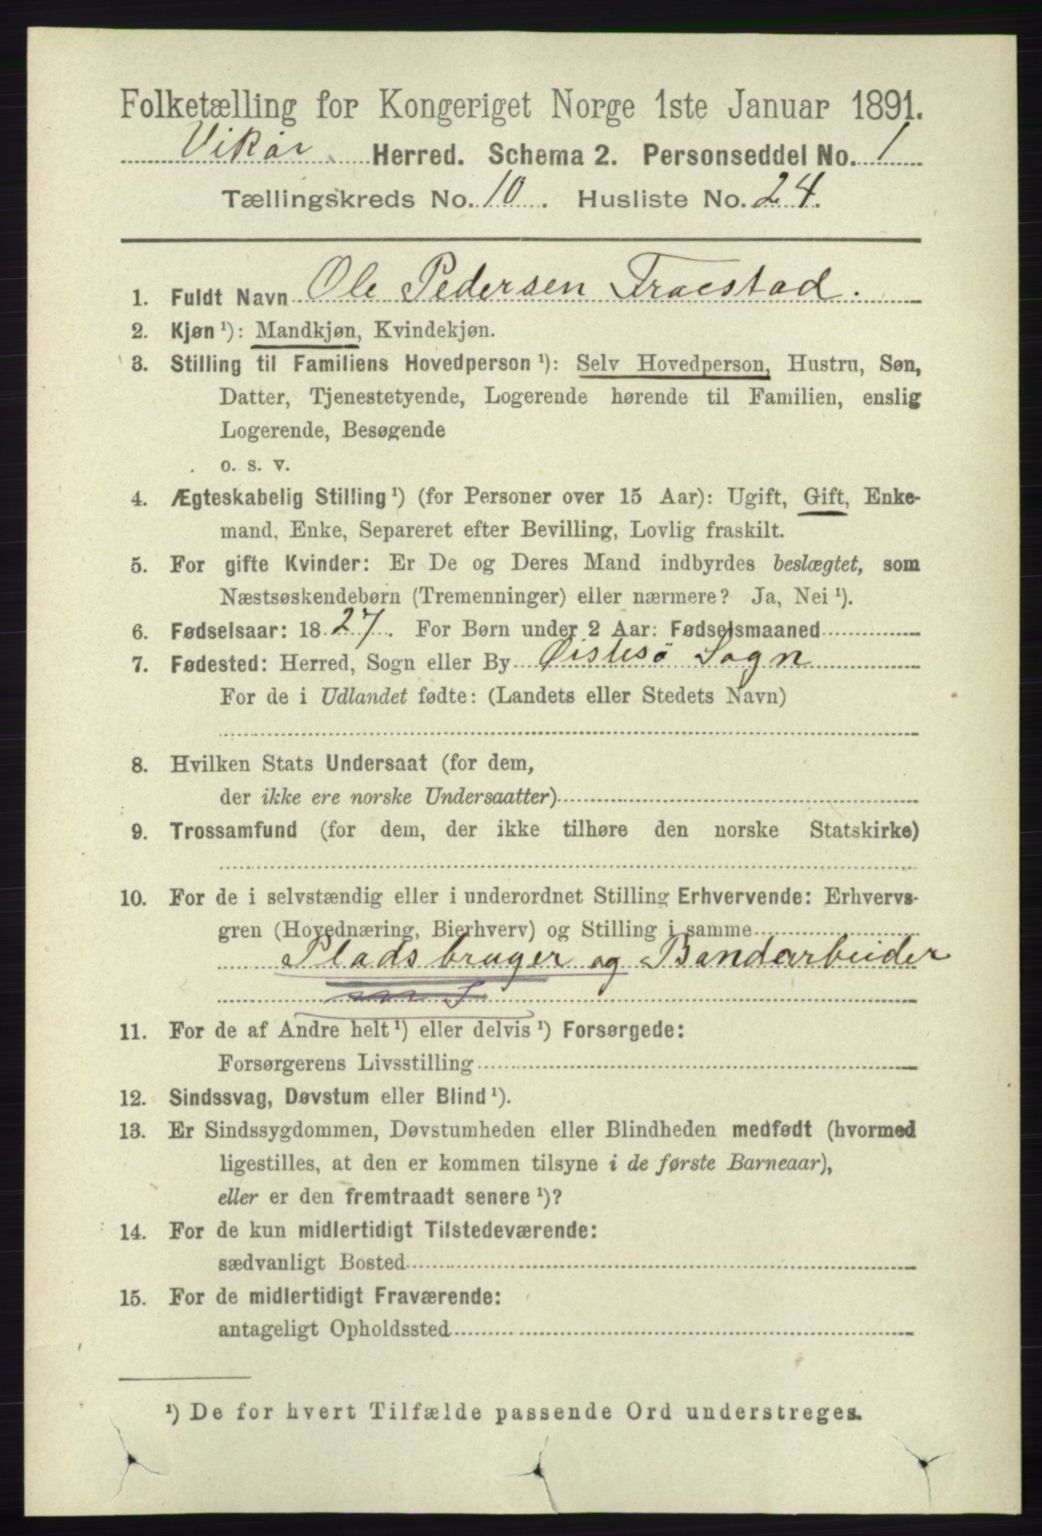 Folketælling for Kongeriget Norge 1ste Januar 1891.
Vikør Herred. Schema 2. Personseddel No. 1
Tællingskreds No. 10. Husliste No. 24.
1. Fuldt Navn Ole Pedersen Traestad.
2. Kjøn ¹): Mandkjøn, Kvindekjøn.
3. Stilling til Familiens Hovedperson ¹): Selv Hovedperson, Hustru, Søn,
Datter, Tjenestetyende, Logerende hørende til Familien, enslig
Logerende, Besøgende
o. s. v.
4. Ægteskabelig Stilling ¹) (for Personer over 15 Aar): Ugift, Gift, Enke-
mand, Enke, Separeret efter Bevilling, Lovlig fraskilt.
5. For gifte Kvinder: Er De og Deres Mand indbyrdes beslægtet, som
Næstsøskendebørn (Tremenninger) eller nærmere? Ja, Nei ¹).
6. Fødselsaar: 1827. For Børn under 2 Aar: Fødselsmaaned
7. Fødested: Herred, Sogn eller By Østesø Sogn
For de i Udlandet fødte: (Landets eller Stedets Navn)
8. Hvilken Stats Undersaat (for dem,
der ikke ere norske Undersaatter)
9. Trossamfund (for dem, der ikke tilhøre den norske Statskirke)
10. For de i selvstændig eller i underordnet Stilling Erhvervende: Erhvervs-
gren (Hovednæring, Bierhverv) og Stilling i samme
Pladsbruger og Bandarbeider
11. For de af Andre helt ¹) eller delvis ¹) Forsørgede:
Forsørgerens Livsstilling
12. Sindssvag, Døvstum eller Blind ¹).
13. Er Sindssygdommen, Døvstumheden eller Blindheden medfødt (hvormed
ligestilles, at den er kommen tilsyne i de første Barneaar),
eller er den fremtraadt senere ¹)?
14. For de kun midlertidigt Tilstedeværende:
sædvanligt Bosted
15. For de midlertidigt Fraværende:
antageligt Opholdssted
¹) De for hvert Tilfælde passende Ord understreges.